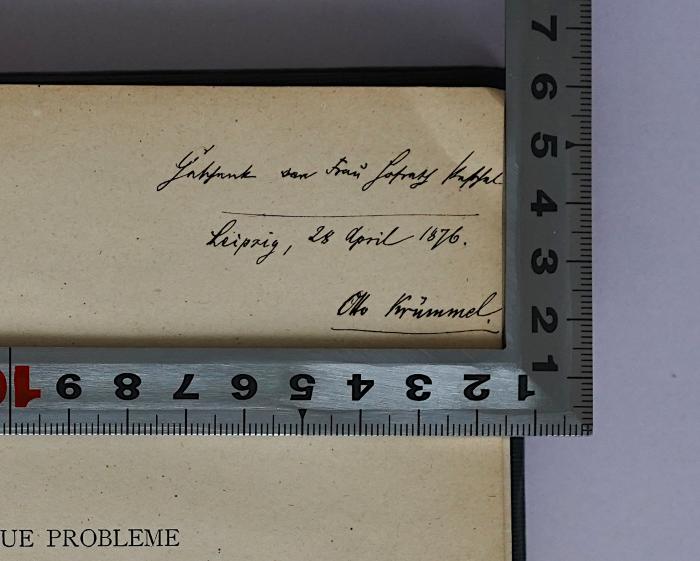 Geschenk von Frau Hofrath Peschel
Leipzig, 28 April 1876.
Otto Krümmel.
1 2 3 4 5 6 7 8 9 10
1 2 3 4 5 6 7
UE PROBLEME